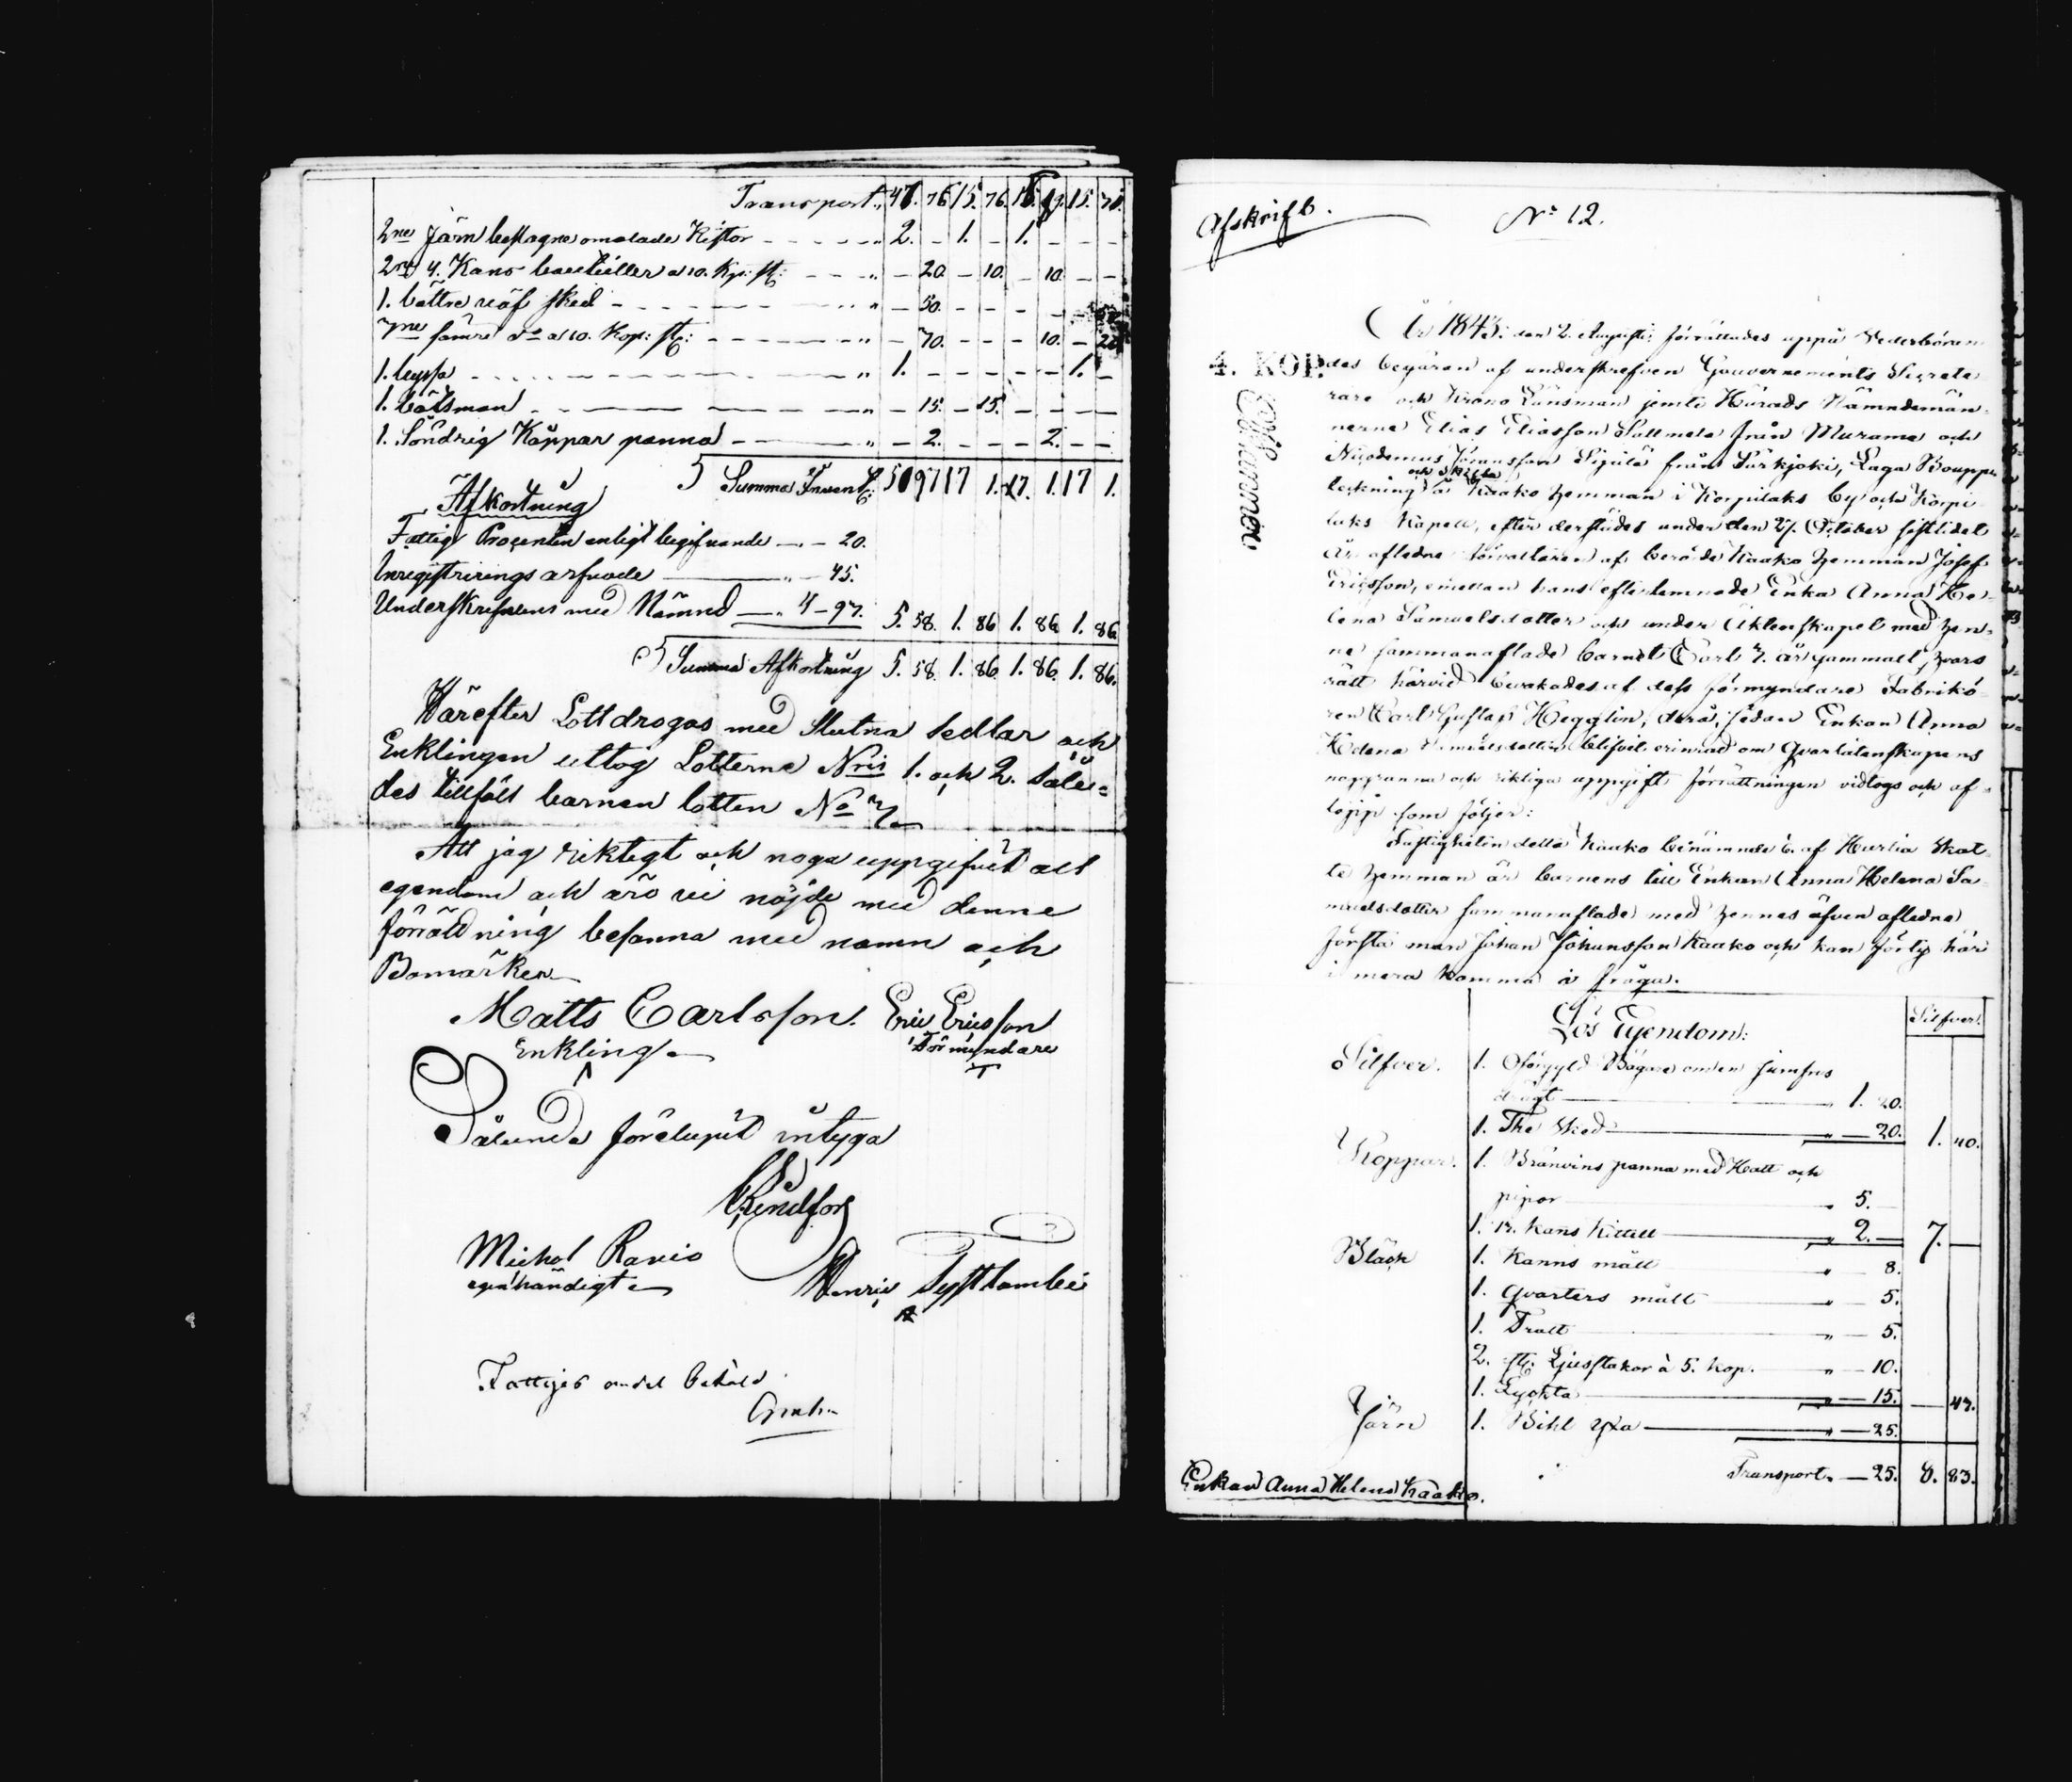 Transport „ 47. 76 15. 76. 15. 15.
2ne Järn beslagne omålade Kistor „ 2. – 1. – 1. – – –
2ne 4. Kans bouteiller a 10. Kp: st: „ – 20. – 10. – 10. – –
1. bättre sked „ – 50. – – – –
7ne sämre do a 10. Kop: st: „ – 70. – – – 10. – 20
1. byssa „ 1. – – – – – 1. –
1. båtsman „ – 15. – 15. – – – –
1. Söndrig Koppar panna „ – 2. – – – 2. – –
Summa Invent: 50 97 17 1. 17. 1. 17 1.
Afkortning
Fattig Procenten enligt begifvande – 20.
Inregistrerings arfvode „ – 45.
Underskrefvens med Nämnd „ 4 – 93. 5. 58. 1. 86 1. 86 1. 86
Summa Afkortning 5. 58. 1. 86. 1. 86. 1. 86.
Härefter Lott drogos med slutna sedlar och
Enklingen uttog Lotterne Nris 1. och 2. sålu=
des tillföll barnen lotten No 3
Att jag riktigt och noga uppgifvit all
egendom och äro vi nöjde med denne
förrättning besanna med namn och
Bomärken
Matts Carlsson. Eric Ericsson
Enkling Förmyndare
Sålunda förelupit intyga
Michel Ravio
egenhändigt Henric
Fattiges andel behåld

Afskrift. No 12.
År 1843. den 2. Augusti, förrättades uppå Vederböran=
4. KOP. des begäran af underskrefven Gouvernements Secrete
rare och Krono Länsman jemte Härads Nämndemän=
nerne Elias Eliasson från Murame och
Nicodemus Johansson Sipilä från Särkjoki, Laga Bouppu
och Skifte
teckning å Kaako hemman i Korpilaks by och Korpi
laks Kapell, efter derstädes under den 27. October sistlidet
år aflednε af berörde Kaako hemman Josef
Ericsson, emellan hans efterlemnade Enka Anna He=
lena Samuelsdotter och under Äktenskapet med hen=
ne sammanaflade barnet Carl 7. år gammalt, hvars
rätt härvid bevakades af dess förmyndare Fabrikö=
ren Carl Gustaf Heggelin, derå, sedan Enkan Anna
Helena Samuelsdotter blifvit erinrad om Qvarlåtenskapens
noggranna och riktiga uppgift förrättningen vidtogs och af=
lopp som följer:
Fastigheten detta Kaako benämnde af Skat=
te hemman är barnens till Enkan Anna Helena Sa=
muelsdotter sammanaflade med hennes äfven afledne
första man Johan Johansson Kaako och kan för ty här
i mera komma i fråga.
Lös Egendom: Silfver.
Silfver. 1. Oförgyld Bägare om en jumfrus
drägt „ 1. 20.
1. The Sked „ – 20. 1. 40.
Koppar. 1. Bränvins panna med Hatt och
pipor „ 5. –
1. 12. Kans Kittell „ 2. – 7. –
Bläck 1. Kanns mått „ 8.
1. Qvarters mått „ – 5.
1. Tratt „ – 5.
2. st. Ljusstakar à 5. Kop. „ – 10.
1. Lyckta „ – 15. – 43.
Järn 1. Bihl Yxa „ – 25.
Transport „ – 25. 8. 83.
Enkan Anna Helena Kaako.